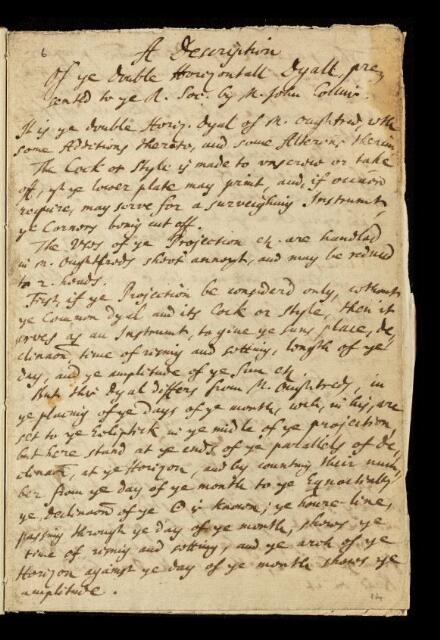 6
A Description
Of ye double Horizontall Dyall, pre,
sented to ye R. Soc. by Mr. John Collins.
It is ye double Horiz. Dyal of Mr. Oughtred, wth
some Additions thereto, and some Alterons therein
The Cock or Style is made to unscrew or take
off, yt ye lower plate may print, and, if occasion
require, may serve for a surveighing Instrumt,
ye Cornors being cut off.
The Uses of ye Projection &c. are handled
in Mr. Oughtreds sheet annext, and may be reduced
to 2. heads.
First, if ye Projection be considerd only, without
ye Common Dyal and its Cock or Style, then it
serves as an Instrumt, to give ye suns place, de,
clinaon, time of rising and setting, length of ye
day, and ye amplitude of ye Sun &c.
But this Dyal differs from Mr. Oughtreds, in
ye placing of ye days of ye month, wch, in his, are
set to ye Ecliptick in ye midle of ye projection,
but here stand at ye ends of ye parallels of De,
clinaon, at ye Horizon, and by counting their num,
ber from ye day of ye month to ye Equnoctially,
ye declinaon of ye ☉ is known; ye houre-line,
passing through ye day of ye month, shows ye
time of rising and setting, and ye arch of ye
Horizon against ye day of ye month shows ye
amplitude.